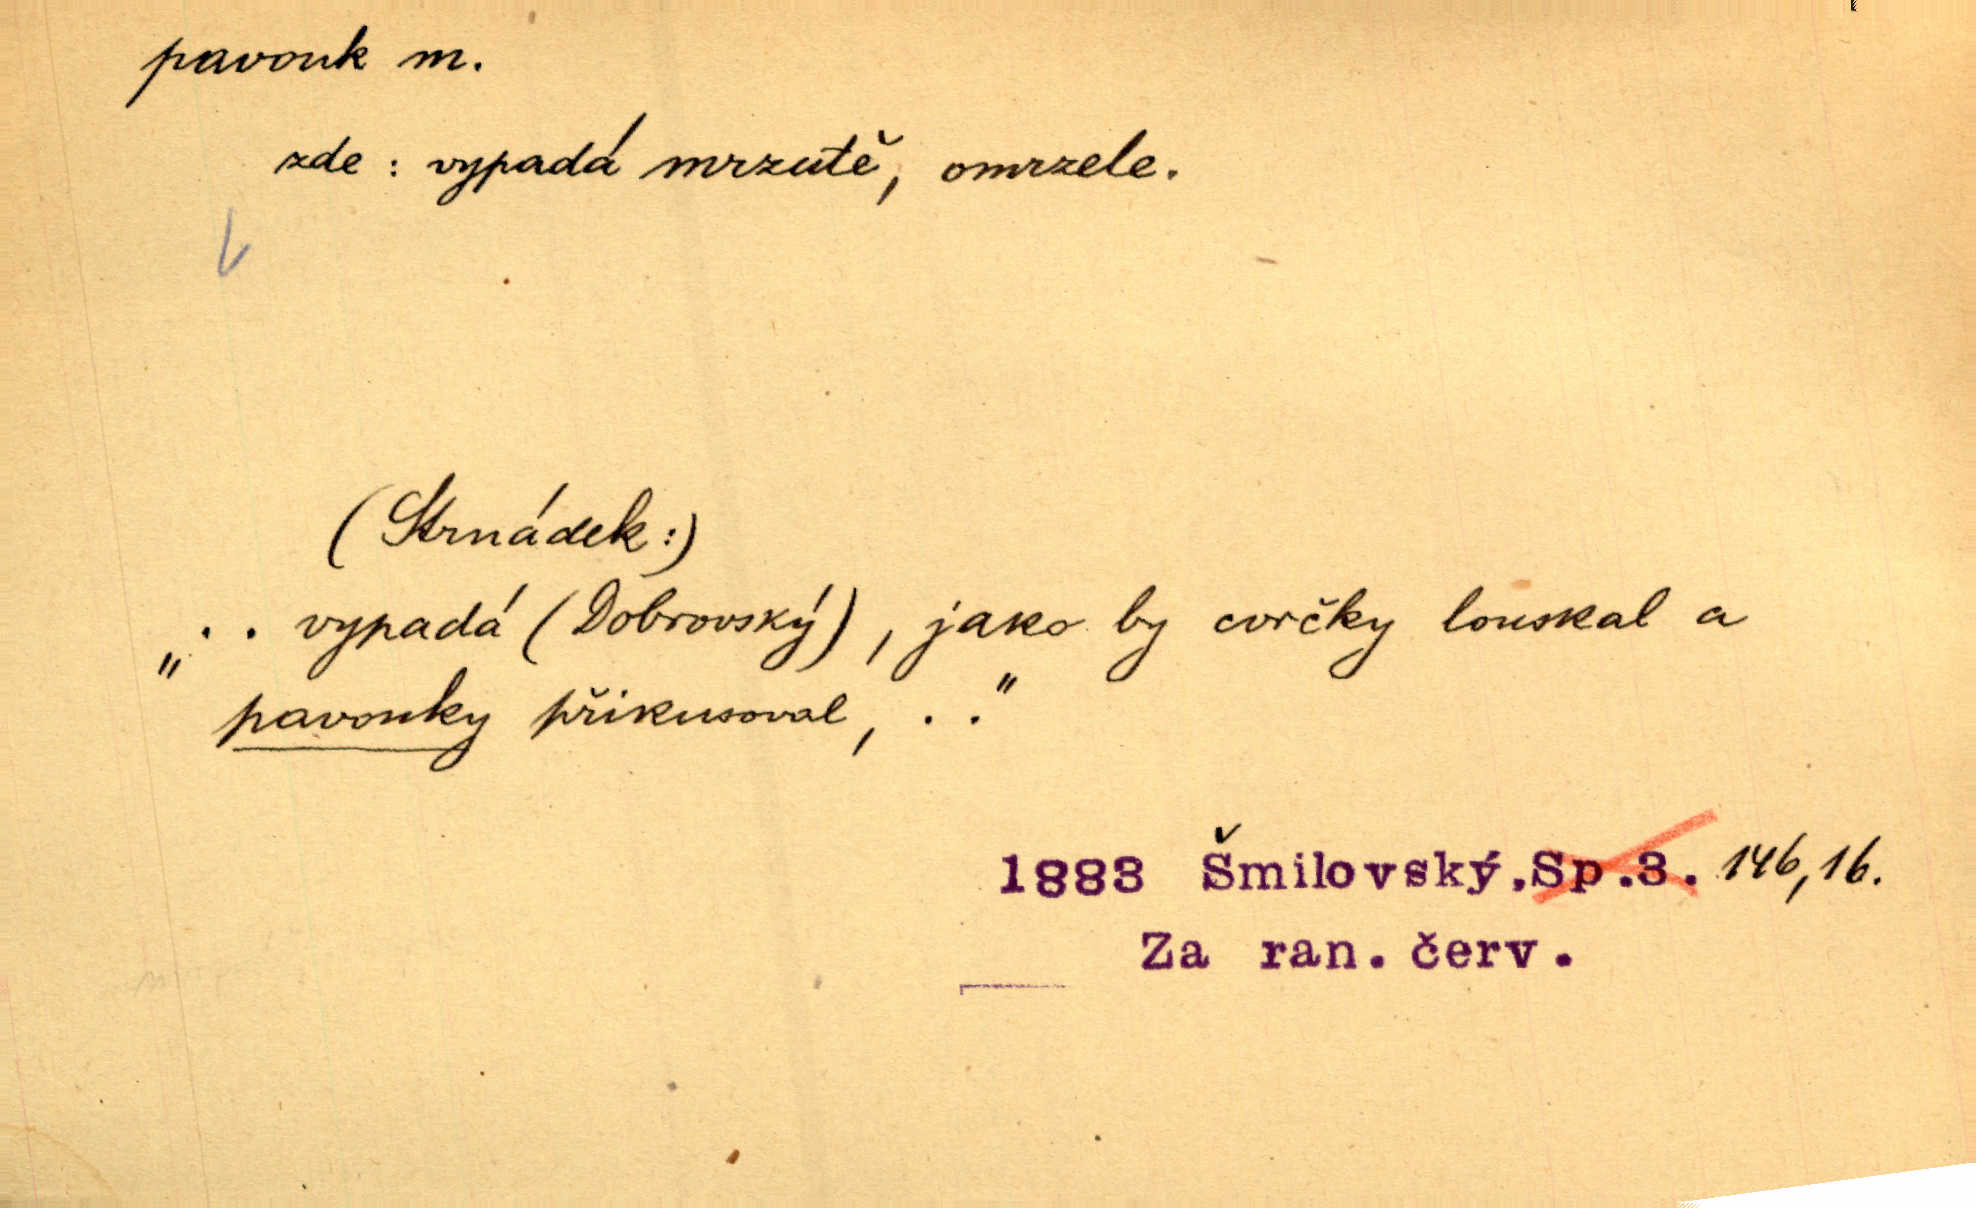 pavouk m.
zde : vypadá mrzutě, omrzele.
(Strnádek:)
„ . . vypadá (Dobrovský), jako by cvrčky louskal a
pavouky přikusoval, . . "
1883 Šmilovský.Sp.3. 146,16.
Za ran. červ.